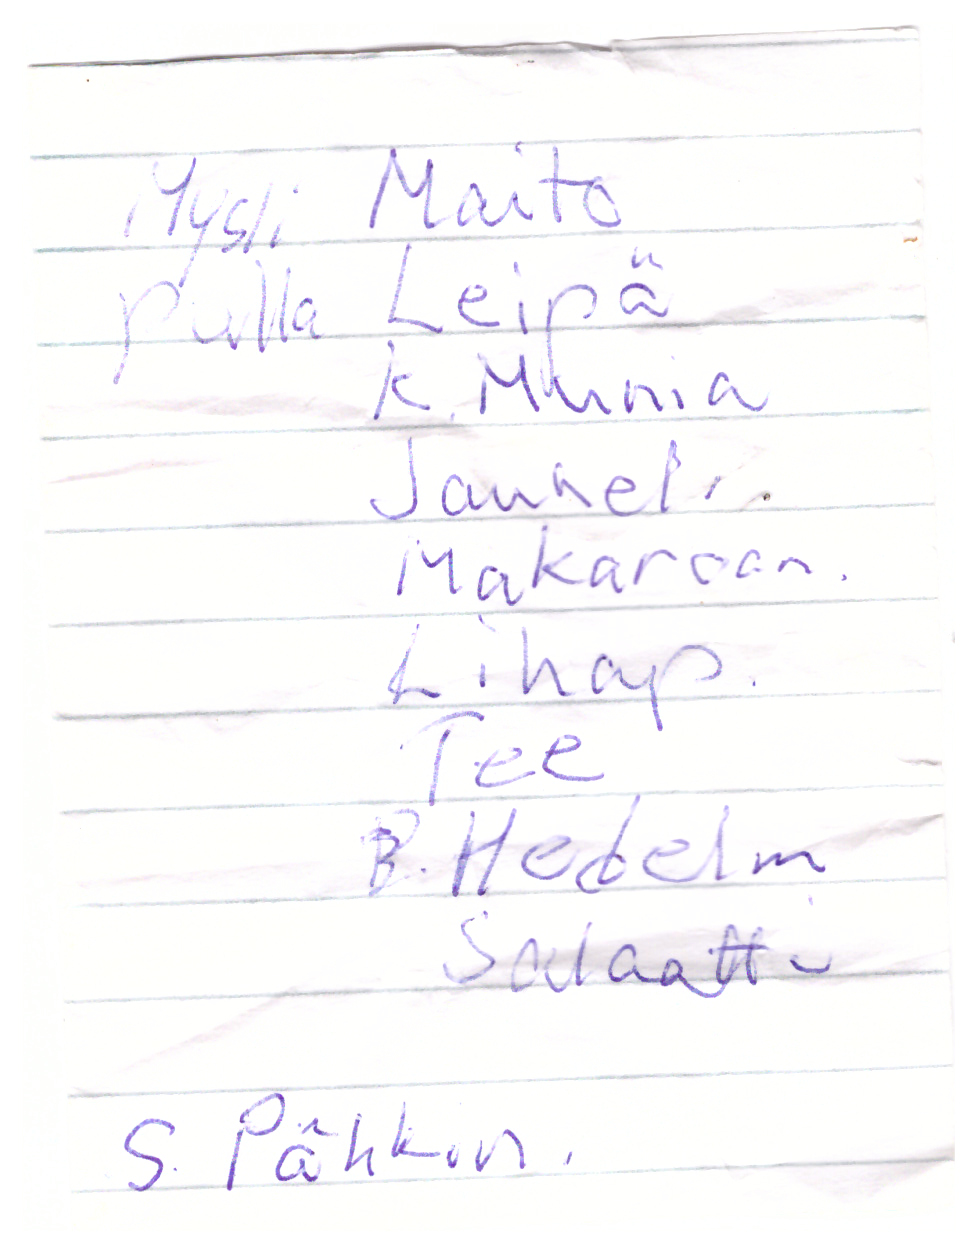 Mysli Maito
pulla Leipä
K. Munia
Jauhel.
Makaroon.
Lihap.
Tee
B. Hedelm
Salaatti
S. Pähkin.